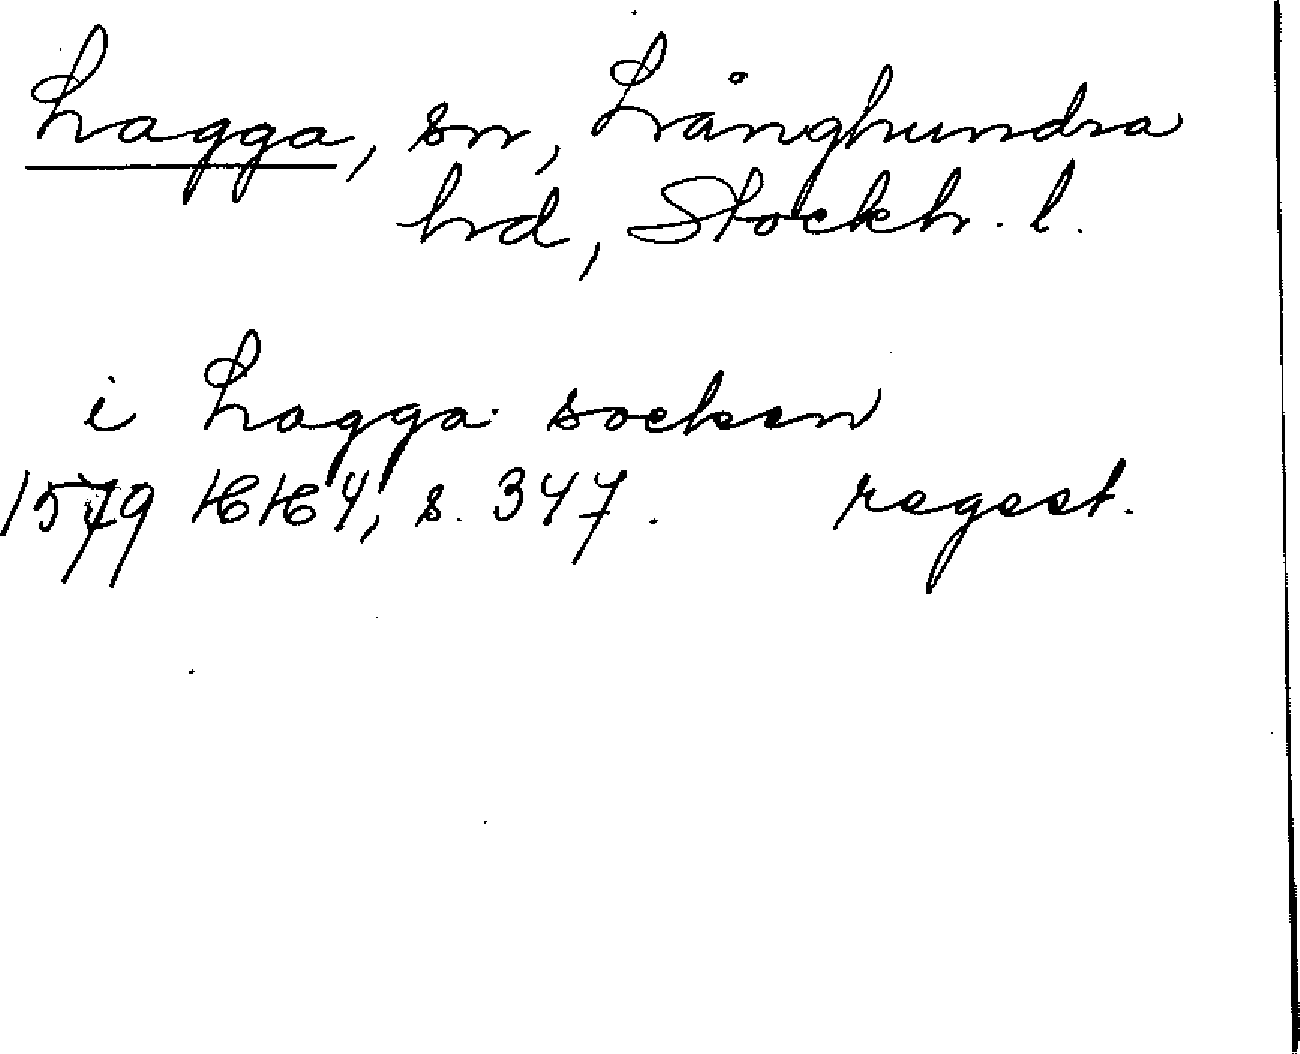 Lagga, sn, Långhundra
hd, Stockh. l.
i Lagga socken
1579 HH 4, s. 347. regest.